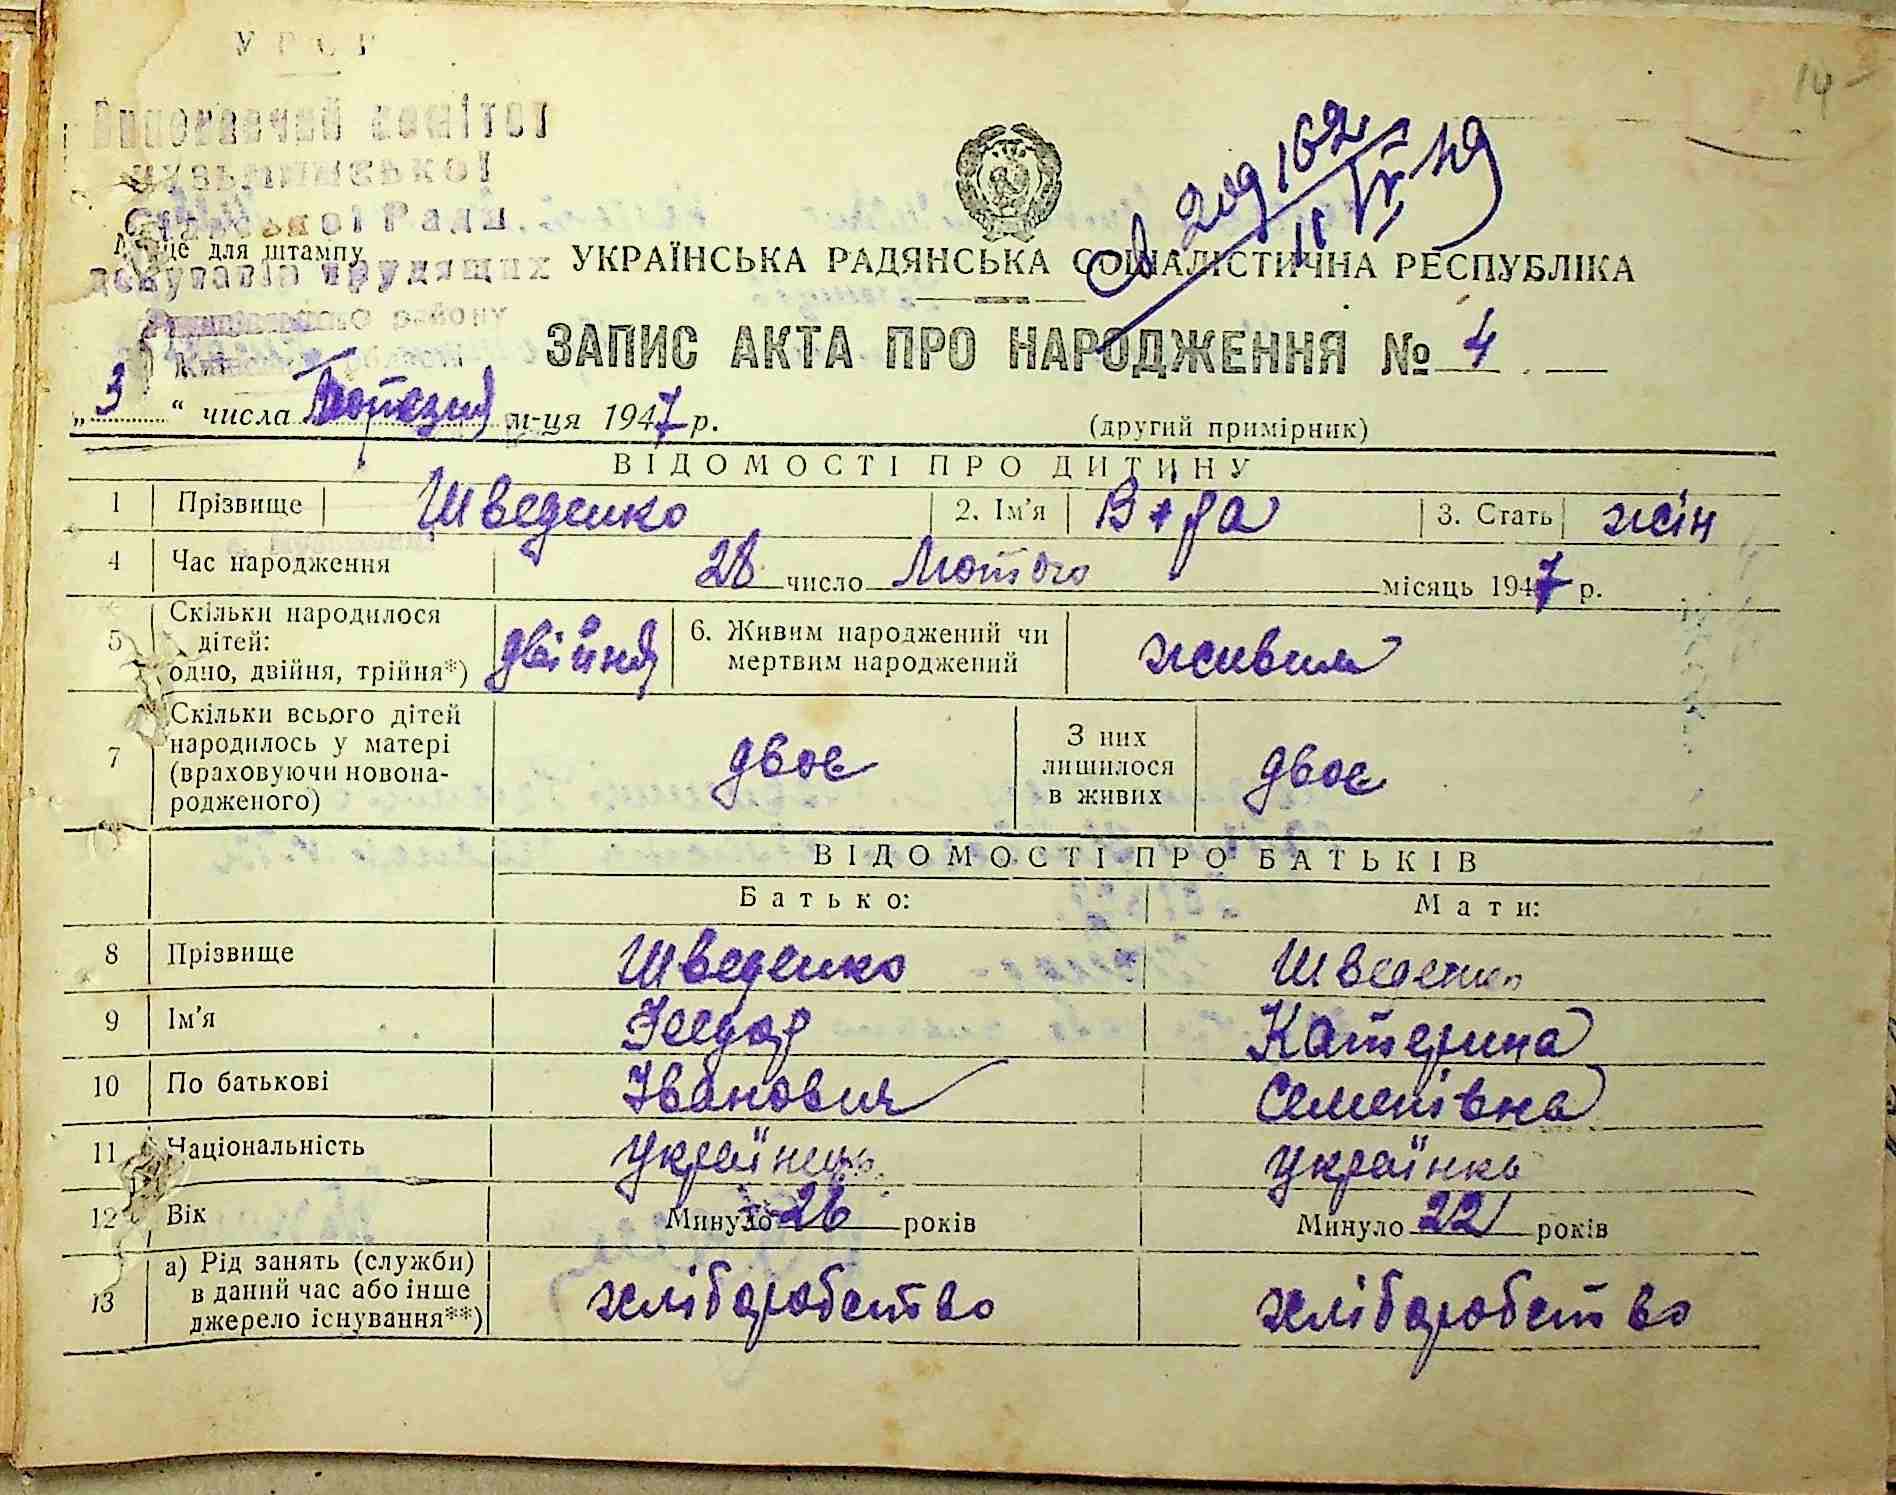 14
УРСР
Виконавчий комітет
Сільської Ради
Місце для штампу
депутатів трудящих
району
209162
УКРАЇНСЬКА РАДЯНСЬКА СОЦІАЛІСТИЧНА РЕСПУБЛІКА
ЗАПИС АКТА ПРО НАРОДЖЕННЯ № 4
„3“ числа Березня м-ця 1947 р.
(другий примірник)
ВІДОМОСТІ ПРО ДИТИНУ
1 Прізвище Шведенко 2. Ім'я Віра 3. Стать жін
4 Час народження 28 число Лютого місяць 1947 р.
5 Скільки народилося дітей: одно, двійня, трійня*) двійня 6. Живим народжений чи мертвим народжений живим
7 Скільки всього дітей народилось у матері (враховуючи новонародженого) двоє З них лишилося в живих двоє
ВІДОМОСТІ ПРО БАТЬКІВ
Батько: Мати:
8 Прізвище Шведенко Шведенко
9 Ім'я Федор Катерина
10 По батькові Іванович Семенівна
11 Національність Українець Українка
12 Вік Минуло 26 років Минуло 22 років
13 а) Рід занять (служби) в даний час або інше джерело існування**) хліборобство хліборобство